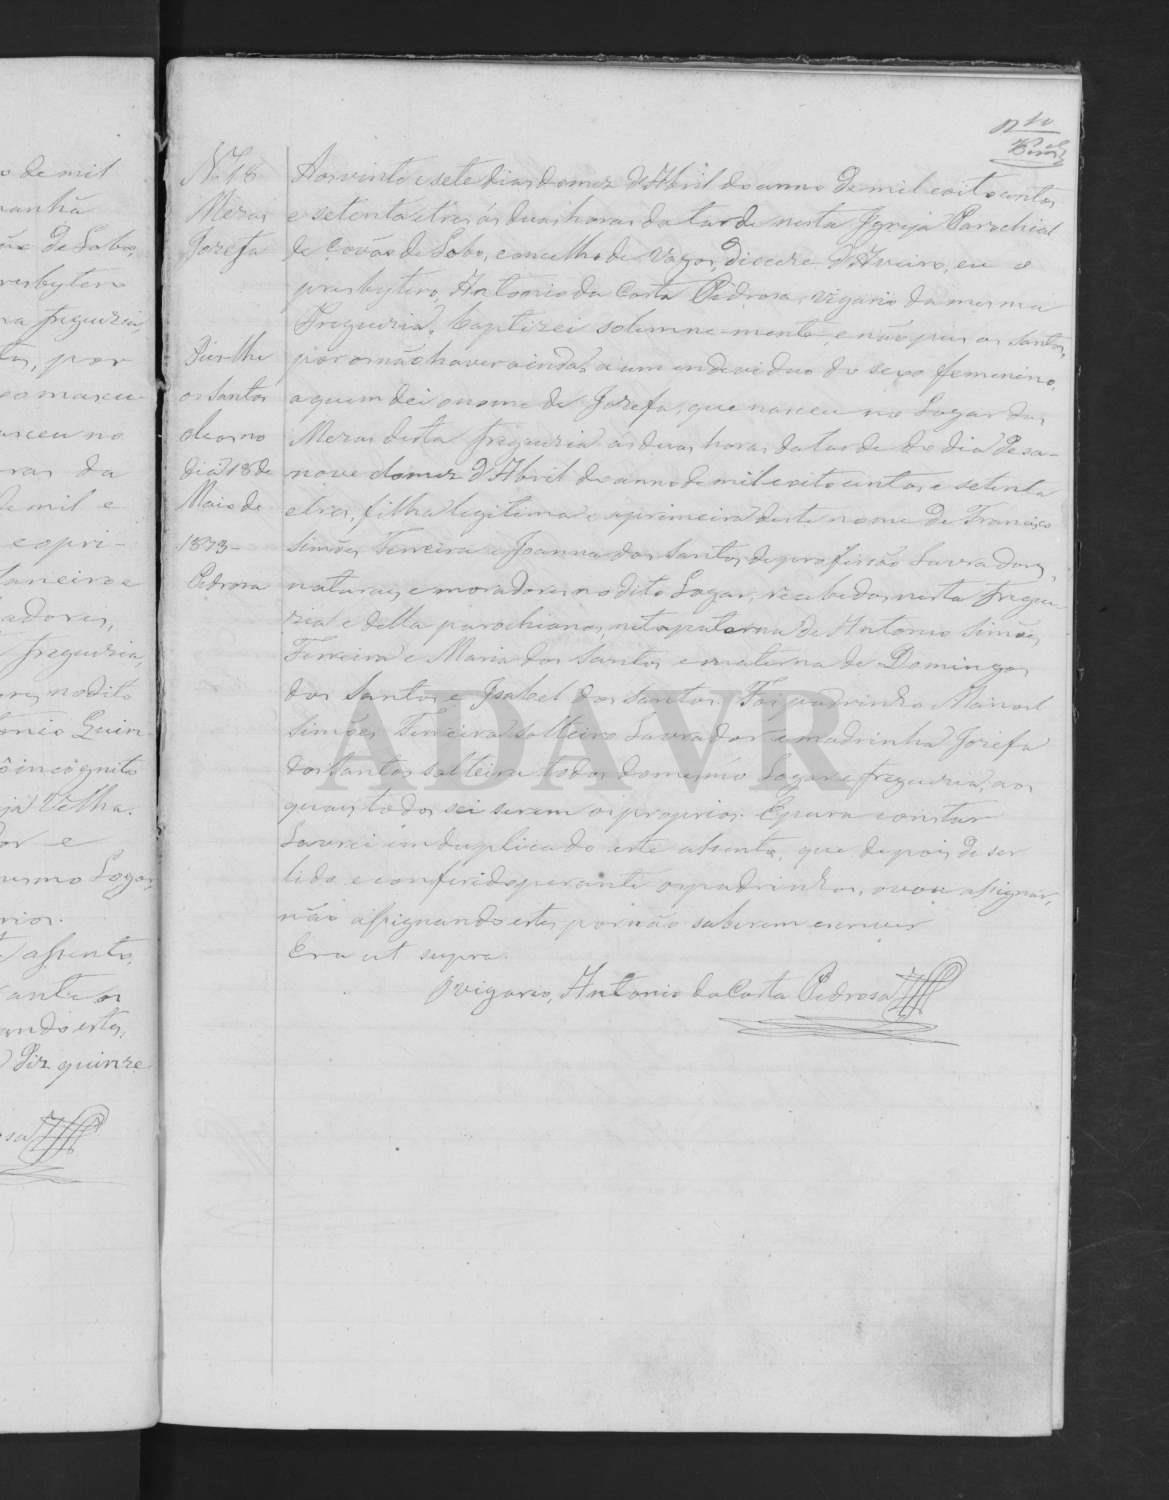 o de mil
manhã
ão de Lobo,
resbytero
na freguezia
tos, por
so mascu-
asceu no
ras da
de mil e
e o pri-
Janeiro e
adores,
freguezia,
ores no dito
tonio Guim
ô incognito
ja Velha.
dor e
mesmo Logar,
rios.
assento,
ante os
ando estes,
Diz quinze
sa
Nº 18
Mezas
Jozefa
Puz-lhe
os Santos
oleos no
dia 18 de
Maio de
1873-
Pedrosa
Aos vinte e sete dias do mez d'Abril do anno de mil e oito centos
e setenta e tres ás duas horas da tarde nesta Igreja Parochial
de Covão de Lobo, concelho de Vagos, diocese d'Aveiro, eu o
presbytero, Antonio da Costa Pedrosa, vigario da mesma
Freguezia, baptizei solemne-mente, e não puz os santos,
por os não haver ainda, a um individuo do sexo femenino,
a quem dei o nome de Jozefa, que nasceu no Logar das
Mezas desta freguezia ás duas horas da tarde do dia desa-
nove do mez d'Abril do anno de mil e oito centos e setenta
e tres, filha legitima e a primeira deste nome de Francisco
Simões Ferreira e Joanna dos Santos de profissão Lavradores,
naturaes e moradores no dito Logar, recebidos nesta fregue-
zia e della parochianos, neta paterna de Antonio Simões
Ferreira e Maria dos Santos e materna de Domingos
dos Santos e Isabel dos Santos. Foi padrinho Manoel
Simões Ferreira solteiro Lavrador e madrinha Jozefa
dos Santos solteira todos do mesmo Logar e freguezia, aos
quaes todos sei serem os proprios. E para constar
Lavrei em duplicado este assento, que depois de ser
lido e conferido perante os padrinhos, o vou assignar,
não assignando estes por não saberem escrever
Era ut supra.
O vigario, Antonio da Costa Pedrosa
ADAVR